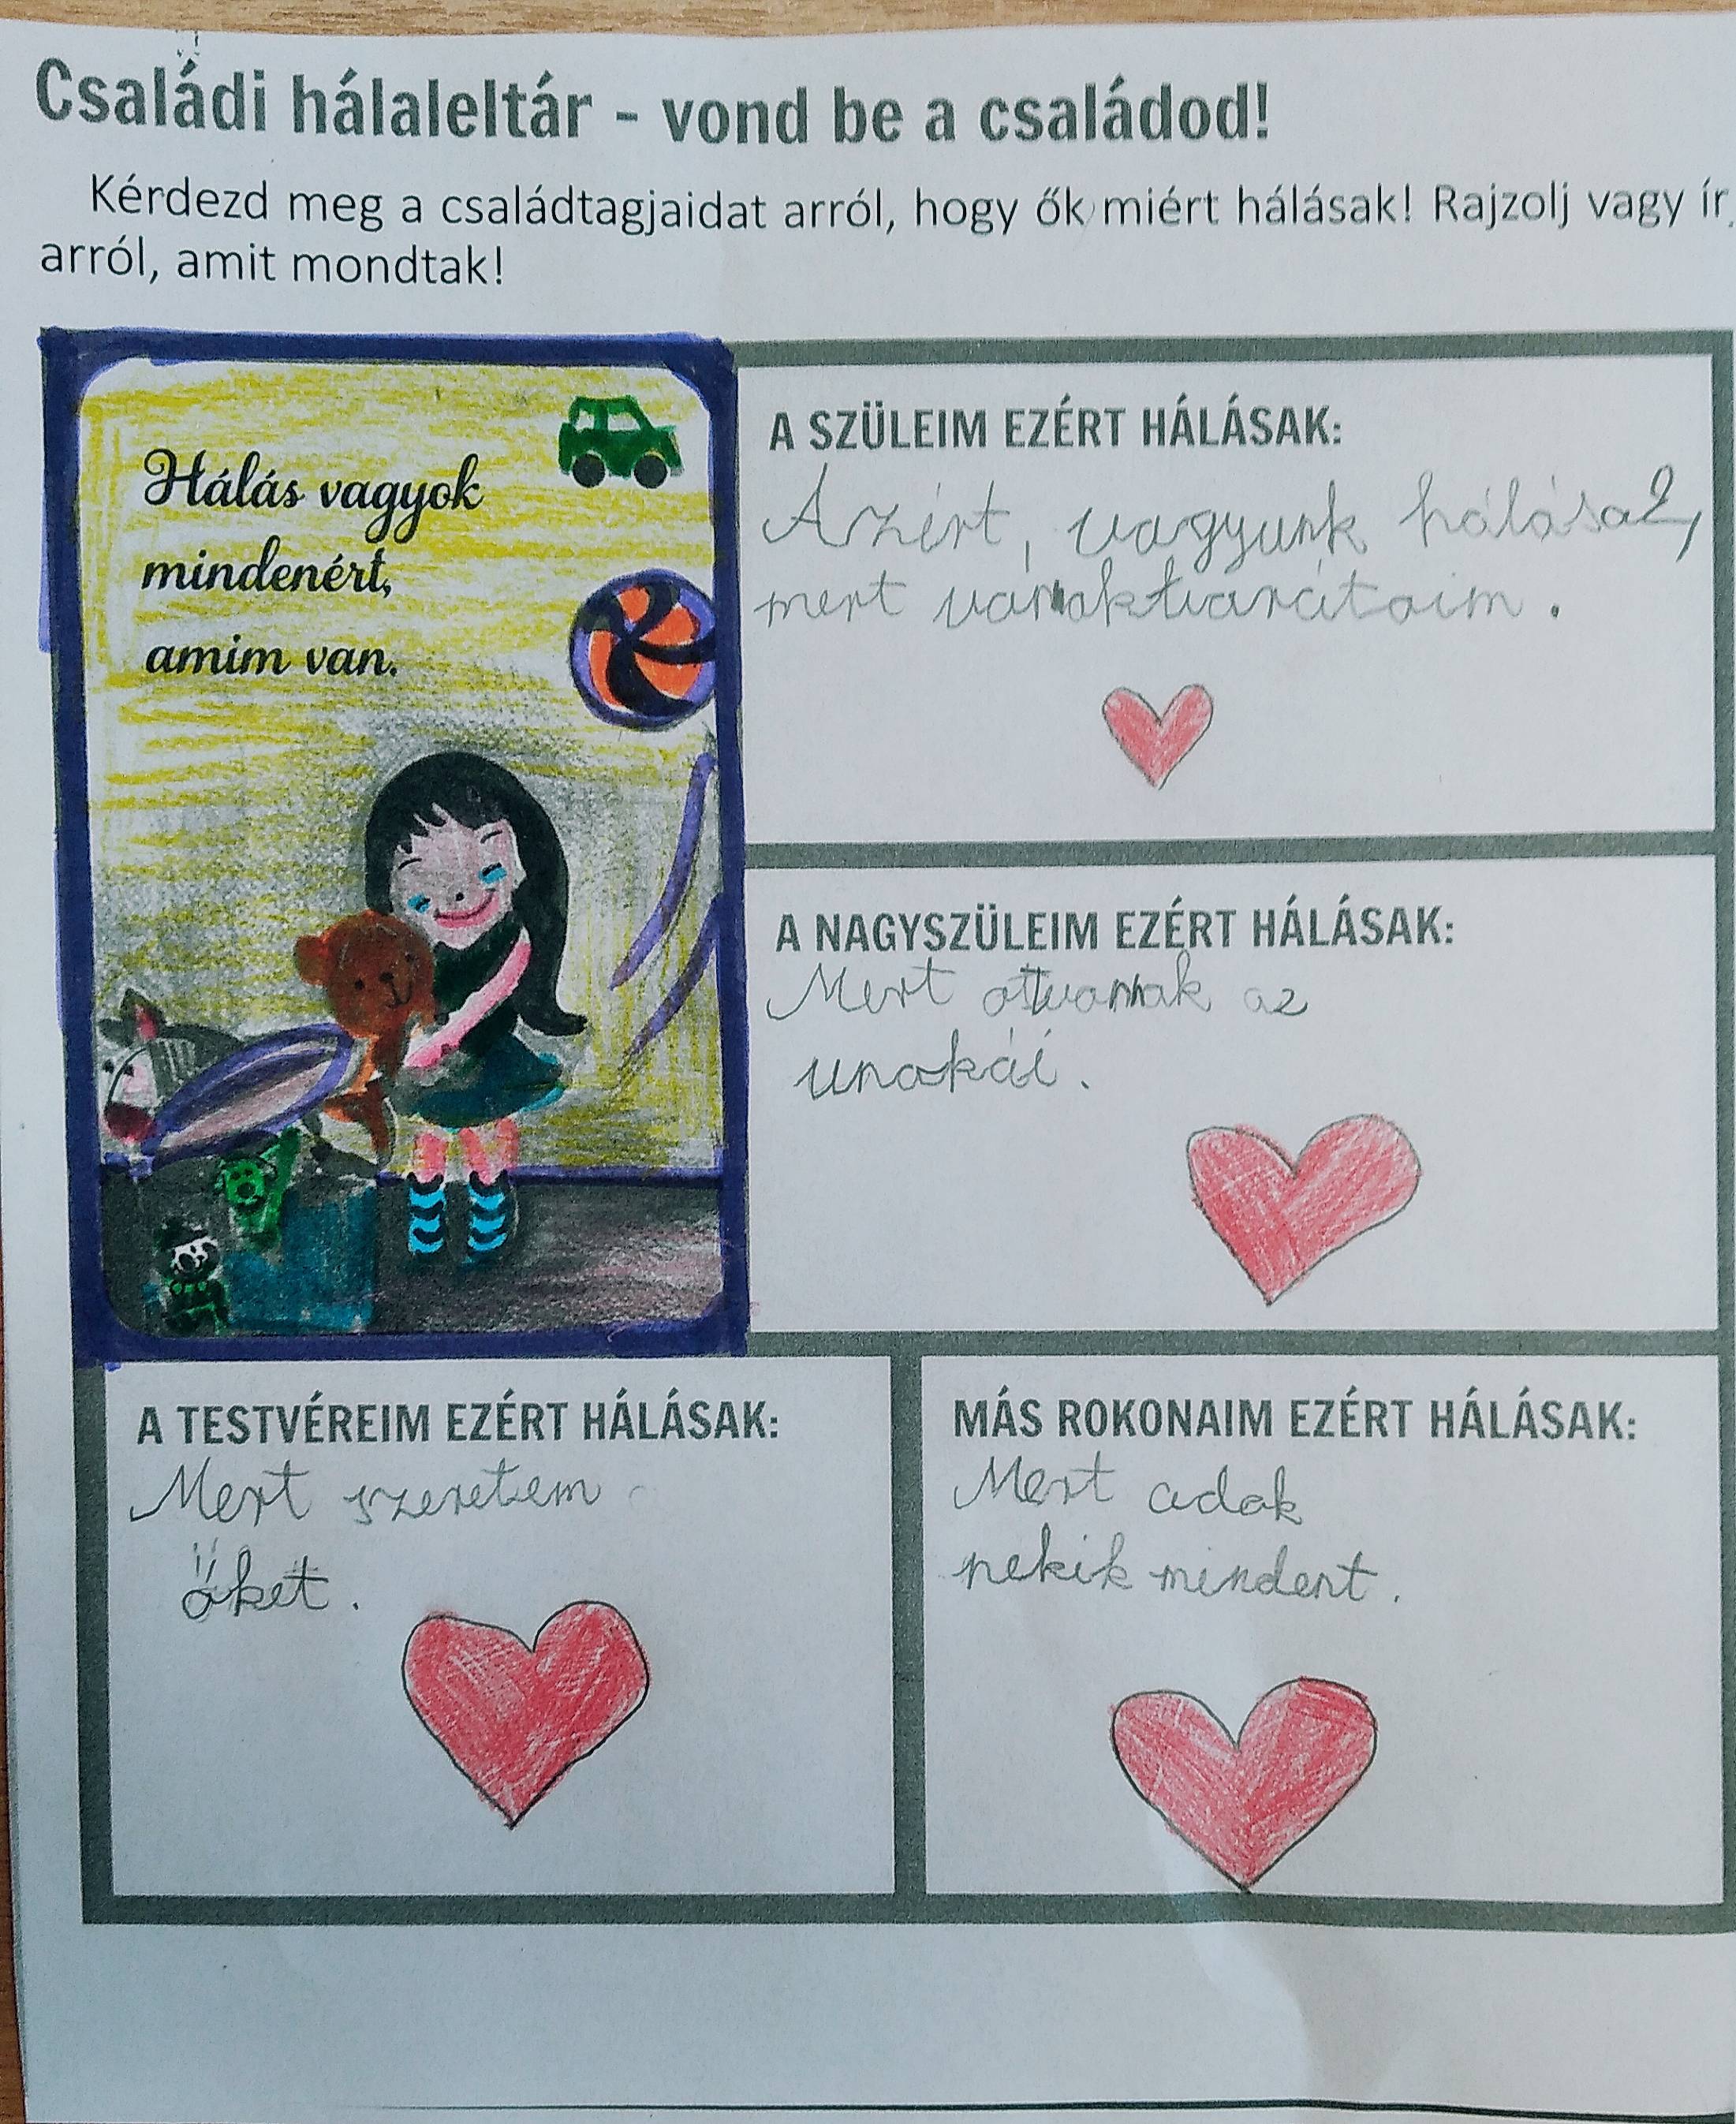 Családi hálaleltár - vond be a családod!
Kérdezd meg a családtagjaidat arról, hogy ők miért hálásak! Rajzolj vagy ír
arról, amit mondtak!
Hálás vagyok
mindenért,
amim van.
A SZÜLEIM EZÉRT HÁLÁSAK:
Azért, vagyunk hálásak,
mert vannak barátaim.
A NAGYSZÜLEIM EZÉRT HÁLÁSAK:
Mert ott vannak az
unokái.
A TESTVÉREIM EZÉRT HÁLÁSAK:
Mert szeretem
őket.
MÁS ROKONAIM EZÉRT HÁLÁSAK:
Mert adok
nekik mindent.